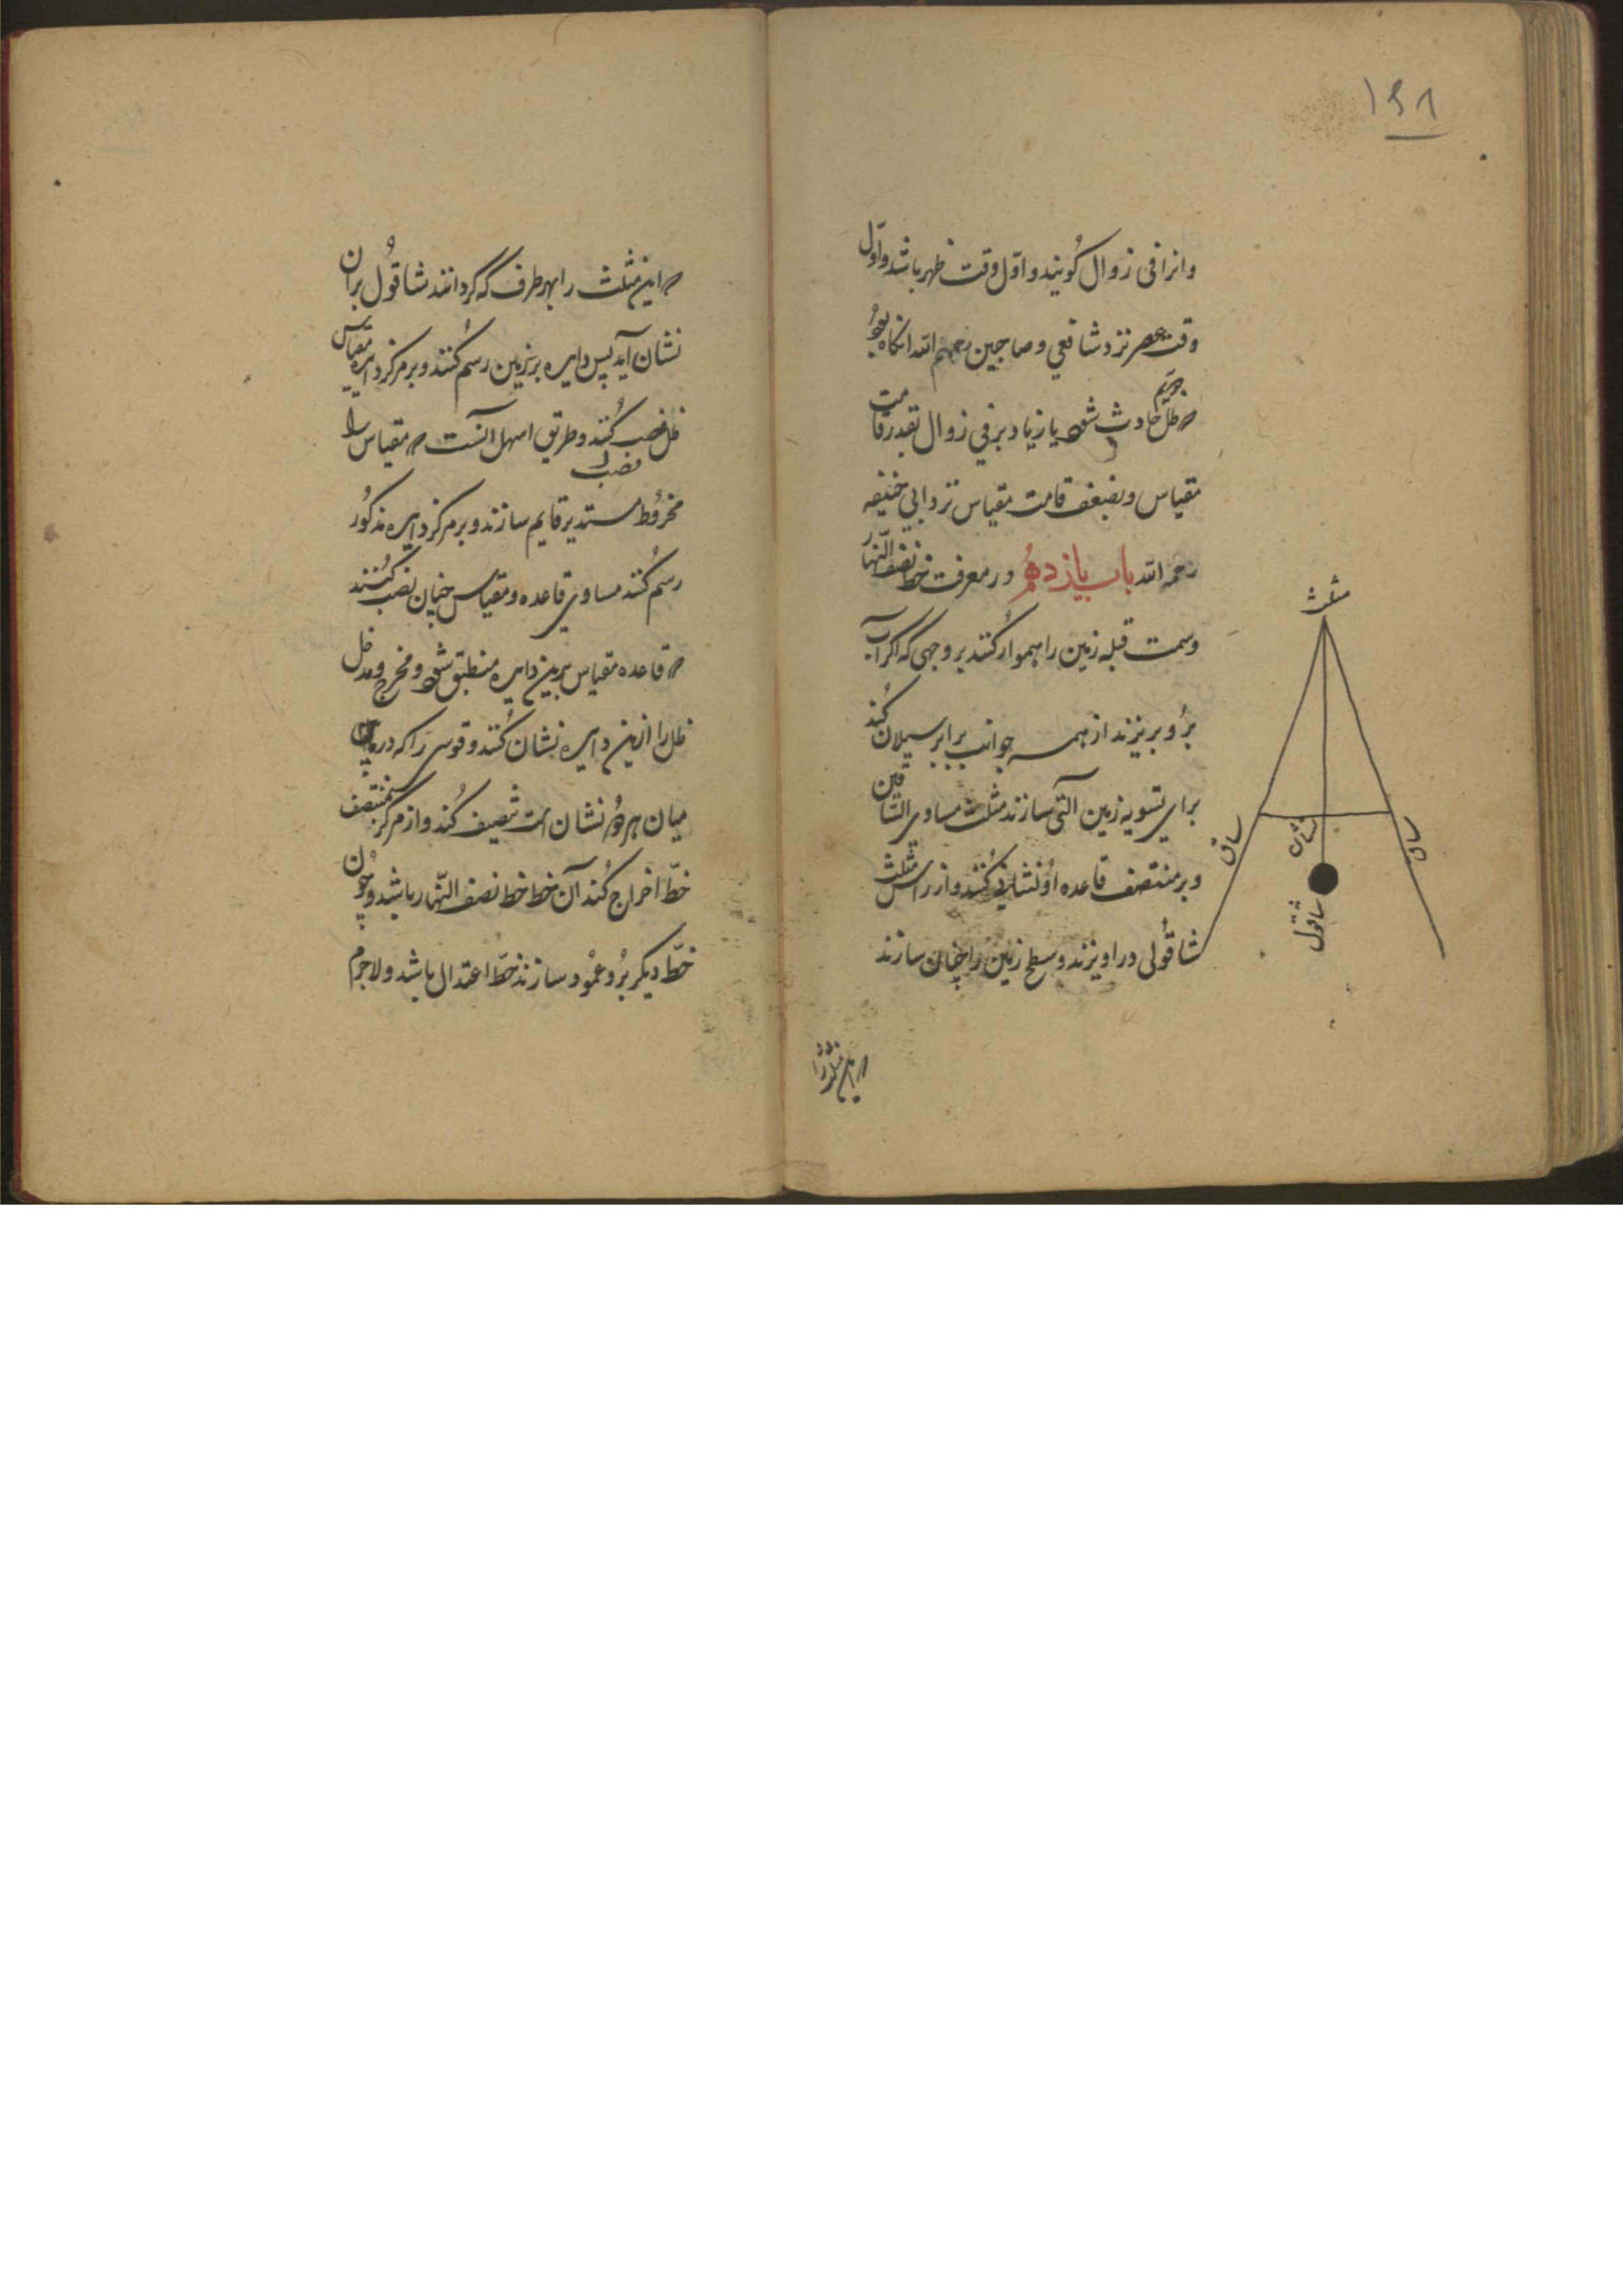 ۱۴۸
وانرا فی زوال کویند و اوّل وقت ظهر باشد و اوّل
وقت عصر نزد شافعی و صاحبین رحمهم الله انکاه بود
که ظلّ حادث شود یا زیاد بر فی زوال بقدر قامت
مقیاس و بضعف قامت مقیاس نزد ابی حنیفه
رحمه الله باب یازدهم در معرفت خط نصف النّهار
وسمت قبله زمین را هموار کنند بر وجهی که اکر آب
برو بریزند از همه جوانب برابر سیلان کند
برای تسویه زمین آلتی سازند مثلث مساوی السّاقین
و بر منتصف قاعده او نشانی کنند و از راس مثلث
شاقولی در اویزند و سطح زمین را چنان سازند
که این مثلث را
مثلث
ساق
نشان
ساق
شاقول
که این مثلث را بهر طرف که کردانند شاقول بران
نشان آید پس دایره بر زمین رسم کنند و بر مرکز دایره مقیاس
ظل نصب کنند و طریق اسهل آنست که مقیاس را
نصب
مخروط مستدیر قایم سازند و بر مرکز دایره مذکور
رسم کنند مساوی قاعده و مقیاس چنان نصب کنند
که قاعده مقیاس برین دایره منطبق شود و مخرج و مدخل
ظل را ازین دایره نشان کنند و قوسی را که در
میان هر دو نشان است تنصیف کند و از مرکز بمنتصف
خطّ اخراج کند آن خط خط نصف النّهار باشد و چون
خطّ دیکر برو عمود سازند خطّ اعتدال باشد و لاجرم